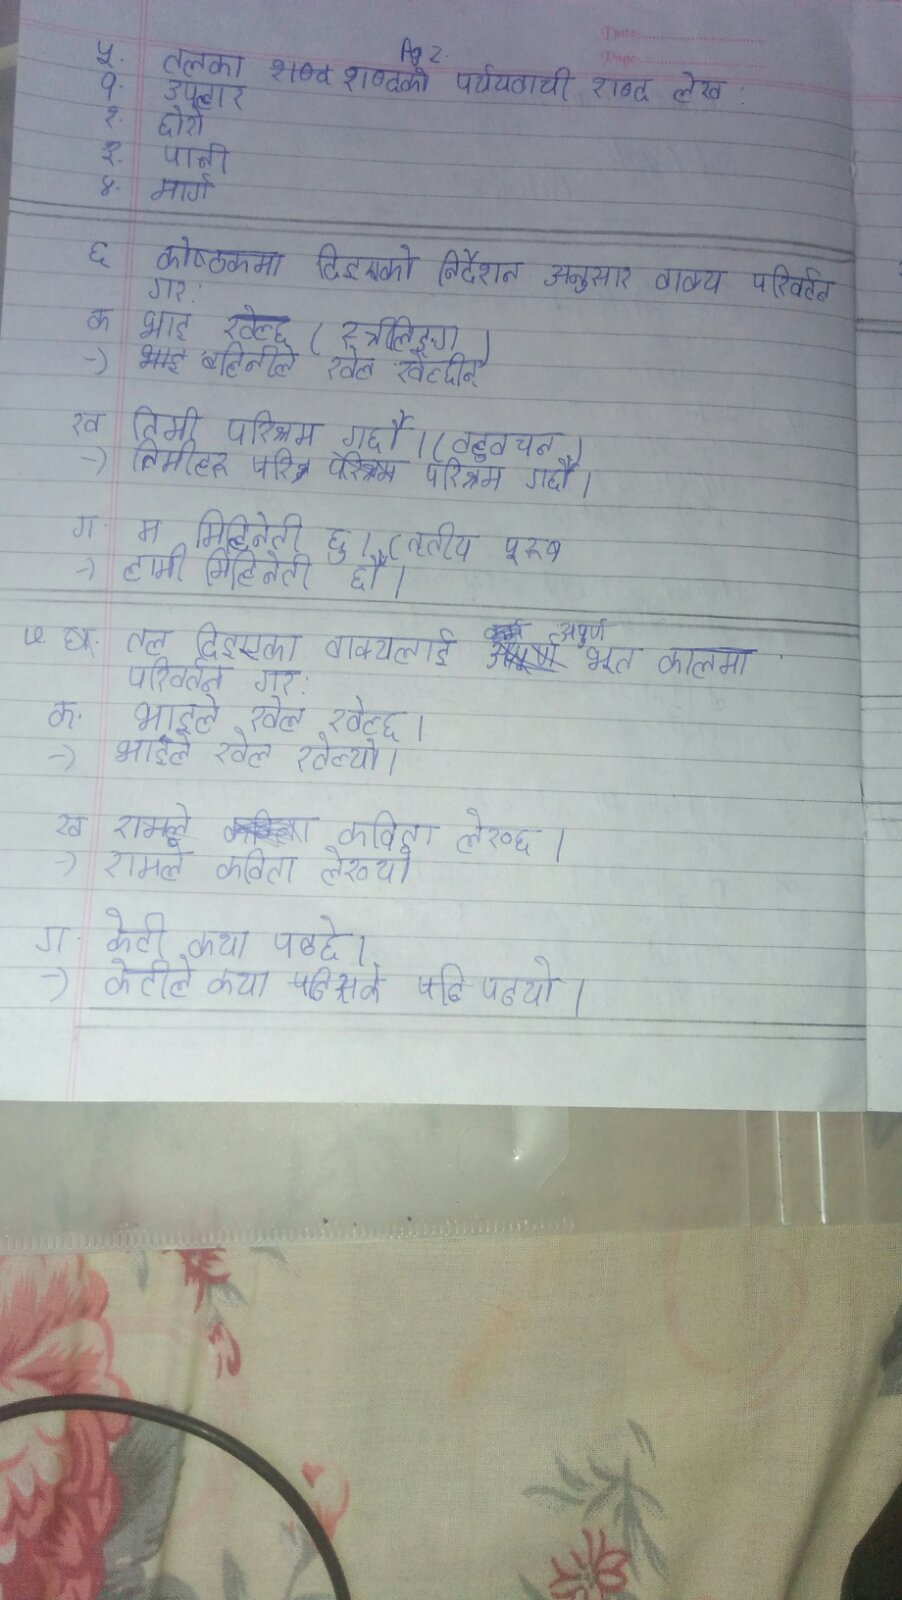 Date
Page
Pg 2.
५. तलका शब्द शब्दको पर्ययवाची शब्द लेख :
१. उपहार
२. छोरो
३. पानी
४. मार्ग
६ कोष्ठकमा दिइएको निर्देशन अनुसार वाक्य परिवर्तन
गर:
क भाइ खेल्छ (स्त्रीलिङ्ग)
→ भाइ बहिनीले खेल खेल्दीन्
ख तिमी परिश्रम गर्छौ। (वहुवचन)
→ तिमीहरू परिश्र परिश्रम परिश्रम गर्छौ।
ग. म मिहिनेती छु। (तृतीय पूरुष
→ हामी मिहिनेती छौं।
तल दिइएका वाक्यलाई अपूर्ण भूत कालमा
परिवर्तन गर:
क. भाइले खेल खेल्छ।
→ भाइले खेल खेल्यो।
ख रामले कविता कविता लेख्छ।
→ रामले कविता लेख्यो
ग. केटी कथा पढ्छे।
→ केटीले कथा पढिसके पढि पढयो।